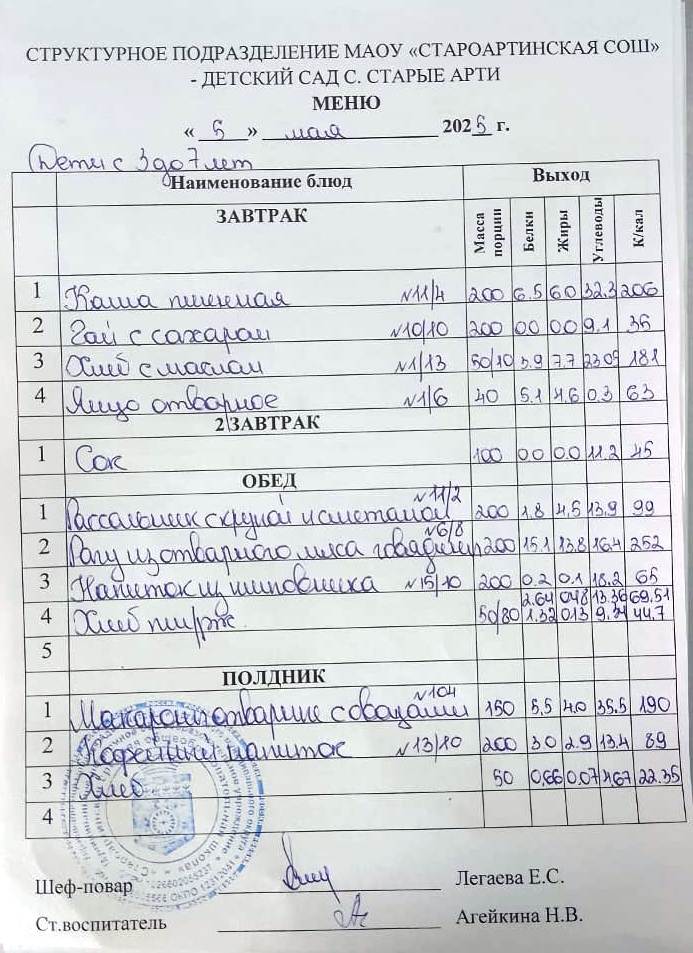 СТРУКТУРНОЕ ПОДРАЗДЕЛЕНИЕ МАОУ «СТАРОАРТИНСКАЯ СОШ»
- ДЕТСКИЙ САД С. СТАРЫЕ АРТИ
МЕНЮ
« 5 » мая 2025 г.
Дети с 3 до 7 лет
Наименование блюд Выход
ЗАВТРАК Масса порции Белки Жиры Углеводы К/кал
1 Каша пшенная №11/4 200 6.5 6.0 32.3 206
2 Чай с сахаром №10/10 200 0.0 0.0 9.1 36
3 Хлеб с маслом №1/13 50/10 3.9 7.7 23.05 181
4 Яйцо отварное №1/6 40 5.1 4.6 0.3 63
2 ЗАВТРАК
1 Сок 100 0.0 0.0 11.2 45
ОБЕД
1 Рассольник с крупой и сметаной №11/2 200 1.8 4.5 13.9 99
2 Рагу из отварного мяса говядины №6/8 200 15.1 13.8 16.4 252
3 Напиток из шиповника №15/10 200 0.2 0.1 18.2 65
2.64 0.48 13.36 69.51
4 Хлеб пш/рж. 50/80 1.32 0.13 9.31 44.7
5
ПОЛДНИК
1 Макароны отварные с овощами №104 150 5.5 4.0 35.5 190
2 Кофейный напиток №13/10 200 3.0 2.9 13.4 89
3 Хлеб 50 0.66 0.07 4.67 22.35
4
Шеф-повар Легаева Е.С.
Ст.воспитатель Агейкина Н.В.